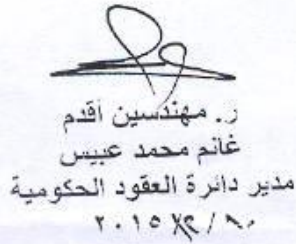 ر. مهندسين أقدم
غانم محمد عبيس
مدير دائرة العقود الحكومية
٢٠١٥